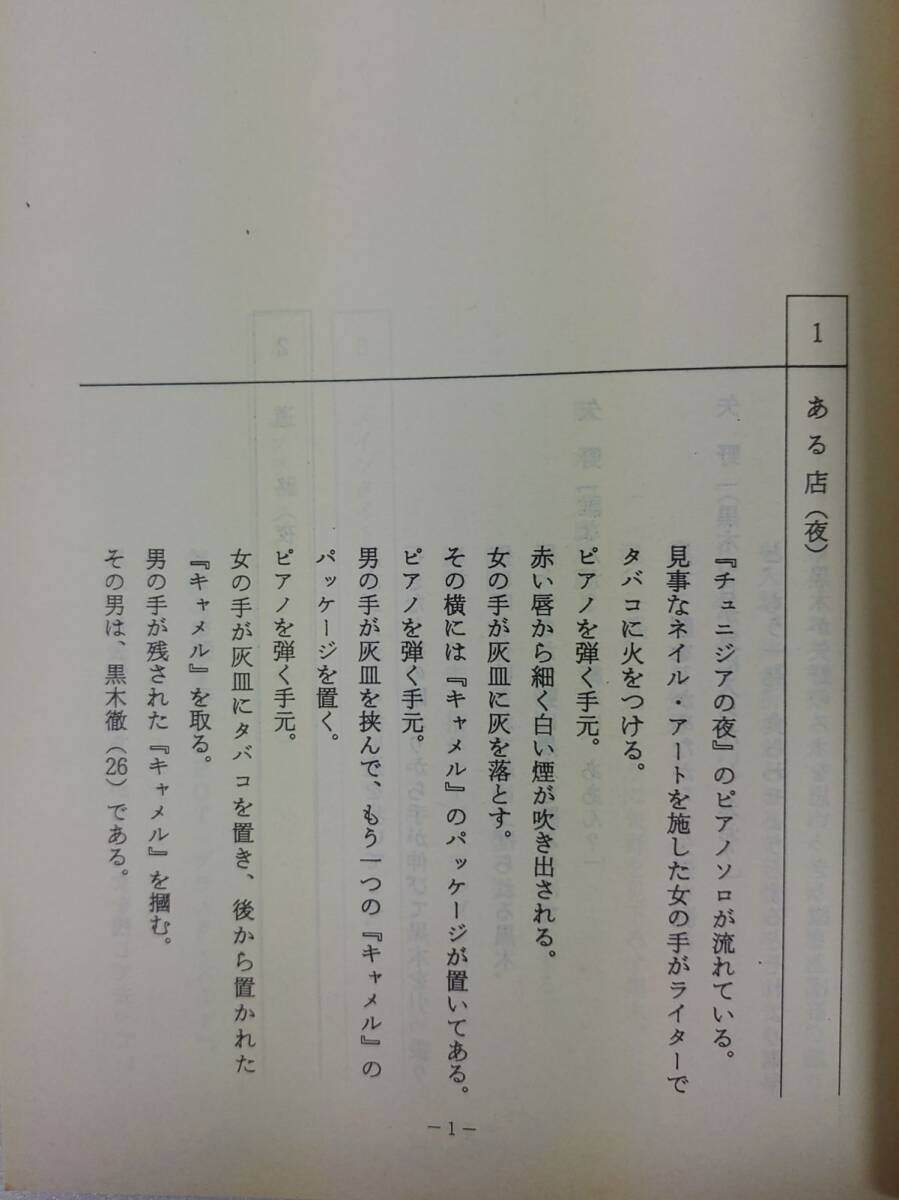 1 ある店(夜)
『チュニジアの夜』のピアノソロが流れている。
見事なネイル・アートを施した女の手がライターで
タバコに火をつける。
ピアノを弾く手元。
赤い唇から細く白い煙が吹き出される。
女の手が灰皿に灰を落とす。
その横には『キャメル』のパッケージが置いてある。
ピアノを弾く手元。
男の手が灰皿を挟んで、もう一つの『キャメル』の
パッケージを置く。
ピアノを弾く手元。
女の手が灰皿にタバコを置き、後から置かれた
『キャメル』を取る。
男の手が残された『キャメル』を摑む。
その男は、黒木徹(26)である。
－1－